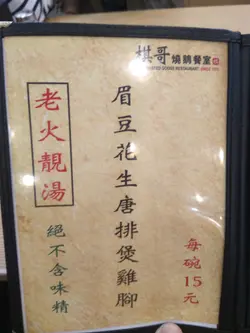 棋哥燒鵝餐室
ROASTED GOOSE RESTAURANT
老火靚湯
絕不含味精
眉豆花生唐排煲雞腳
每碗15元